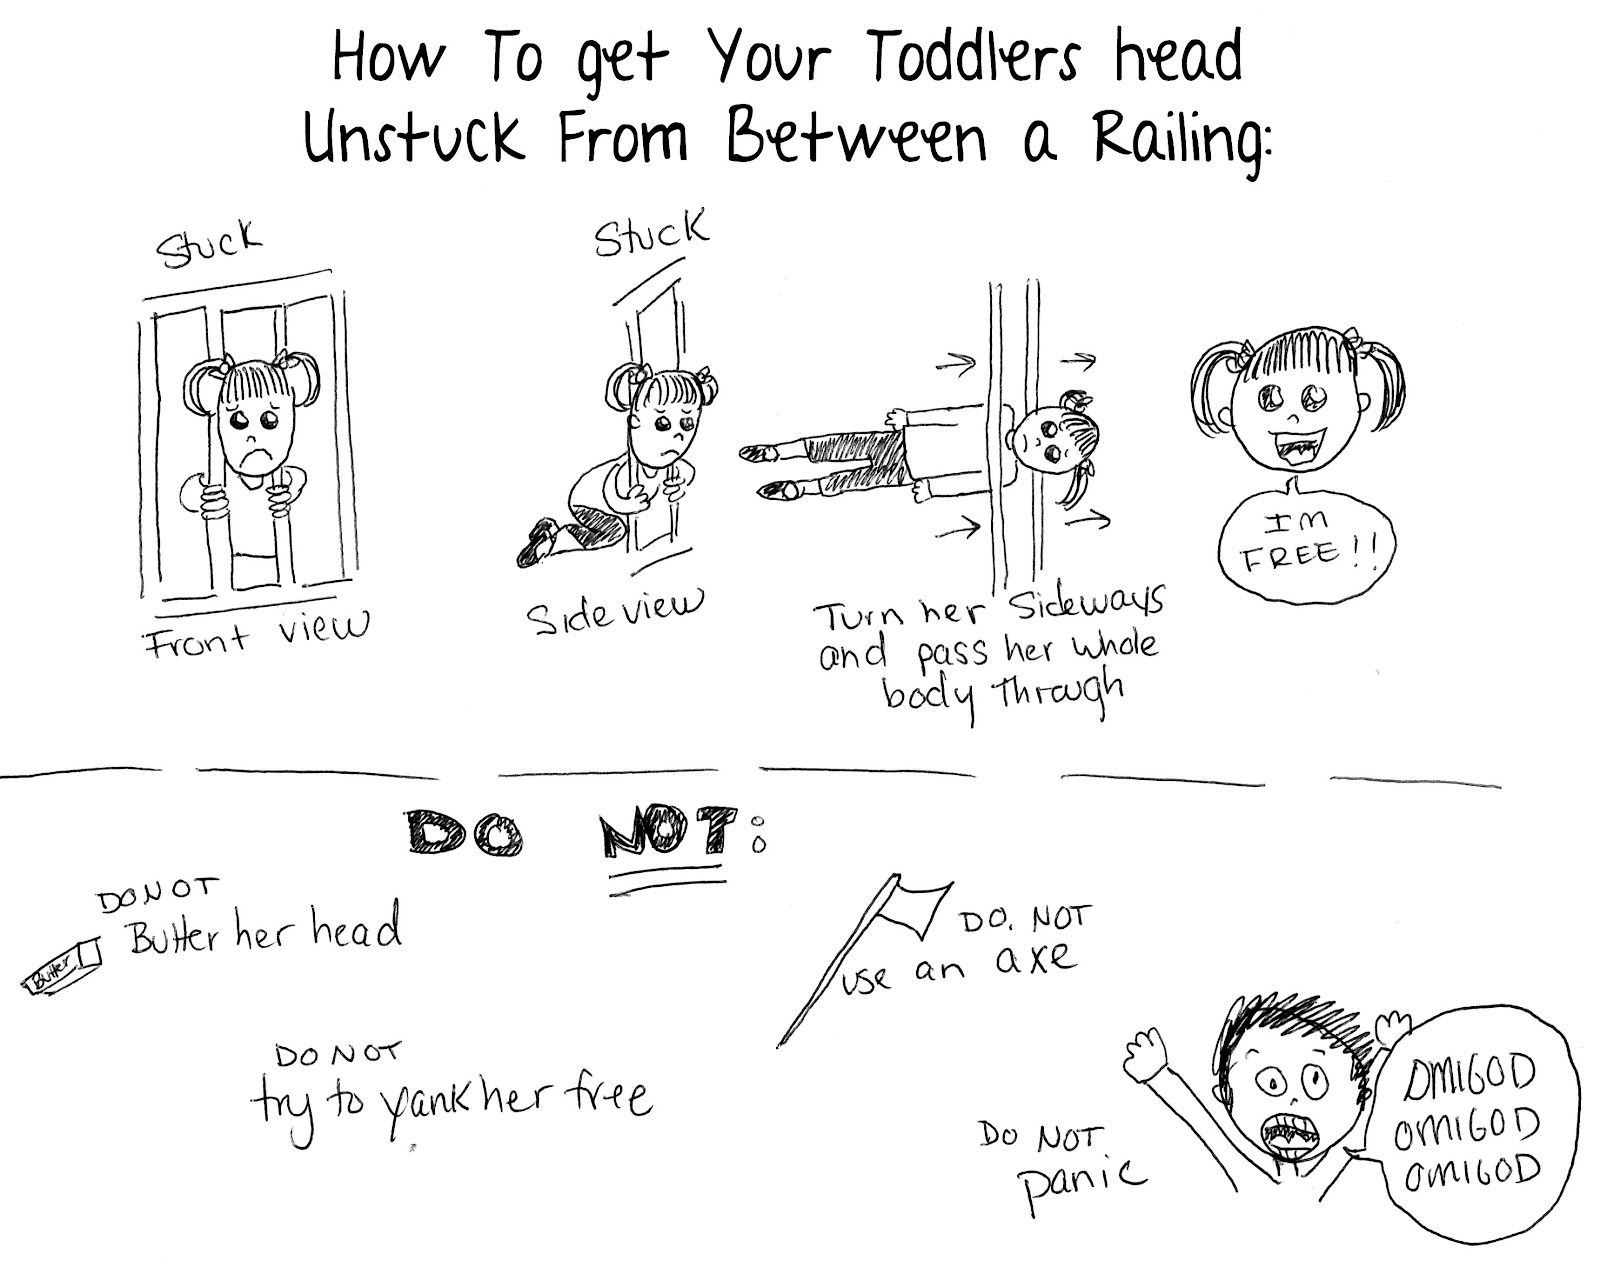 How To get Your Toddlers head
Unstuck From Between a Railing:
Stuck
Front view
Stuck
Side view
Turn her Sideways
and pass her whole
body through
IM
FREE!!
DO NOT:
DO NOT
Butter her head
Butter
DO NOT
try to yank her free
DO. NOT
use an axe
DO NOT
panic
OMIGOD
OMIGOD
OMIGOD